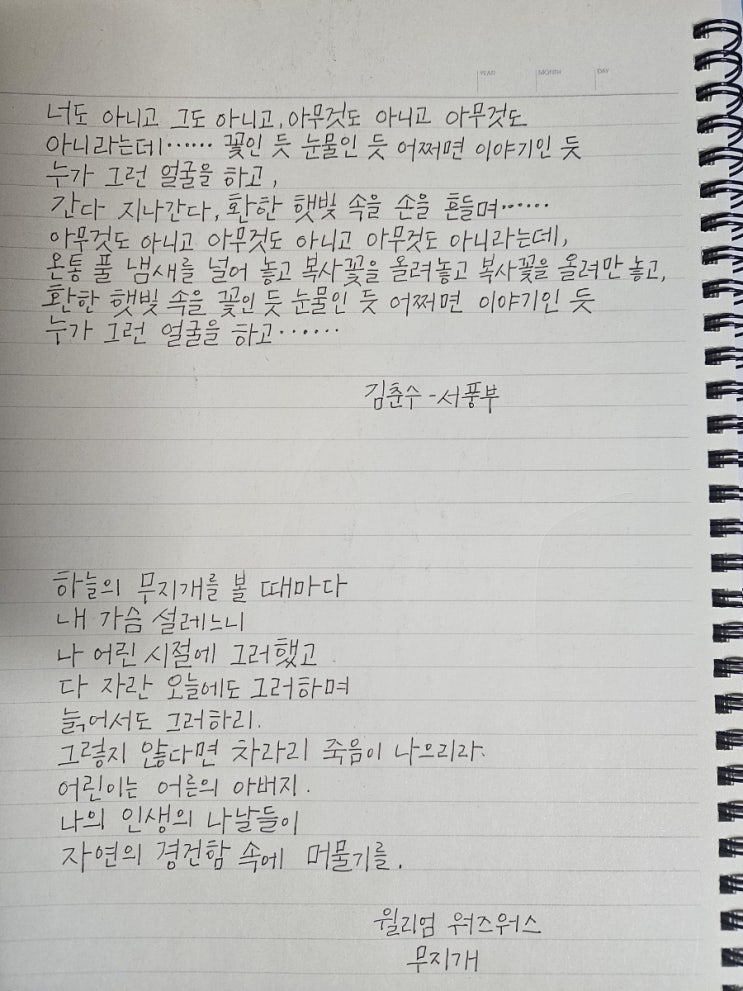 YEAR MONTH DAY
너도 아니고 그도 아니고, 아무것도 아니고 아무것도
아니라는데…… 꽃인 듯 눈물인 듯 어쩌면 이야기인 듯
누가 그런 얼굴을 하고,
간다 지나간다, 환한 햇빛 속을 손을 흔들며……
아무것도 아니고 아무것도 아니고 아무것도 아니라는데,
온통 풀 냄새를 널어 놓고 복사꽃을 올려놓고 복사꽃을 올려만 놓고,
환한 햇빛 속을 꽃인 듯 눈물인 듯 어쩌면 이야기인 듯
누가 그런 얼굴을 하고……
김춘수 - 서풍부
하늘의 무지개를 볼 때마다
내 가슴 설레느니
나 어린 시절에 그러했고
다 자란 오늘에도 그러하며
늙어서도 그러하리.
그렇지 않다면 차라리 죽음이 나으리라.
어린이는 어른의 아버지.
나의 인생의 나날들이
자연의 경건함 속에 머물기를.
윌리엄 워즈워스
무지개